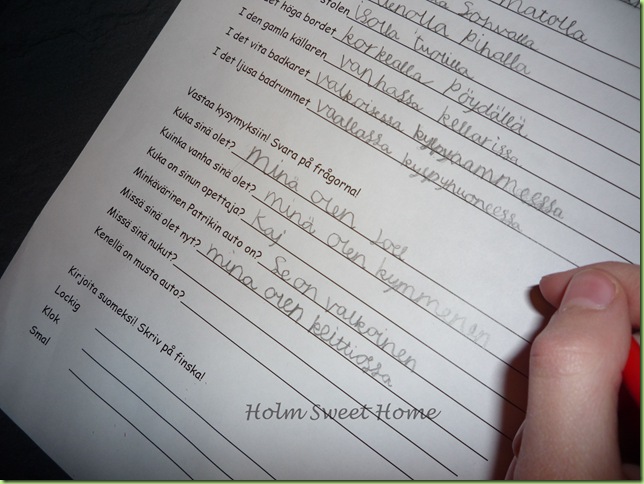 matolla
sohvalla
pihalla
stolen isolla tuolilla
det höga bordet korkealla pöydällä
I den gamla källaren vanhassa kellarissa
I det vita badkaret valkoisessa kylpyaammeessa
I det ljusa badrummet vaaleassa kylpyhuoneessa
Vastaa kysymyksiin! Svara på frågorna!
Kuka sinä olet? Minä olen Joel
Kuinka vanha sinä olet? minä olen kymmenen
Kuka on sinun opettaja? Kaj
Minkävärinen Patrikin auto on? Se on valkoinen
Missä sinä olet nyt? minä olen keittiössä
Missä sinä nukut?
Kenellä on musta auto?
Kirjoita suomeksi! Skriv på finska!
Lockig
Klok
Smal
Holm Sweet Home